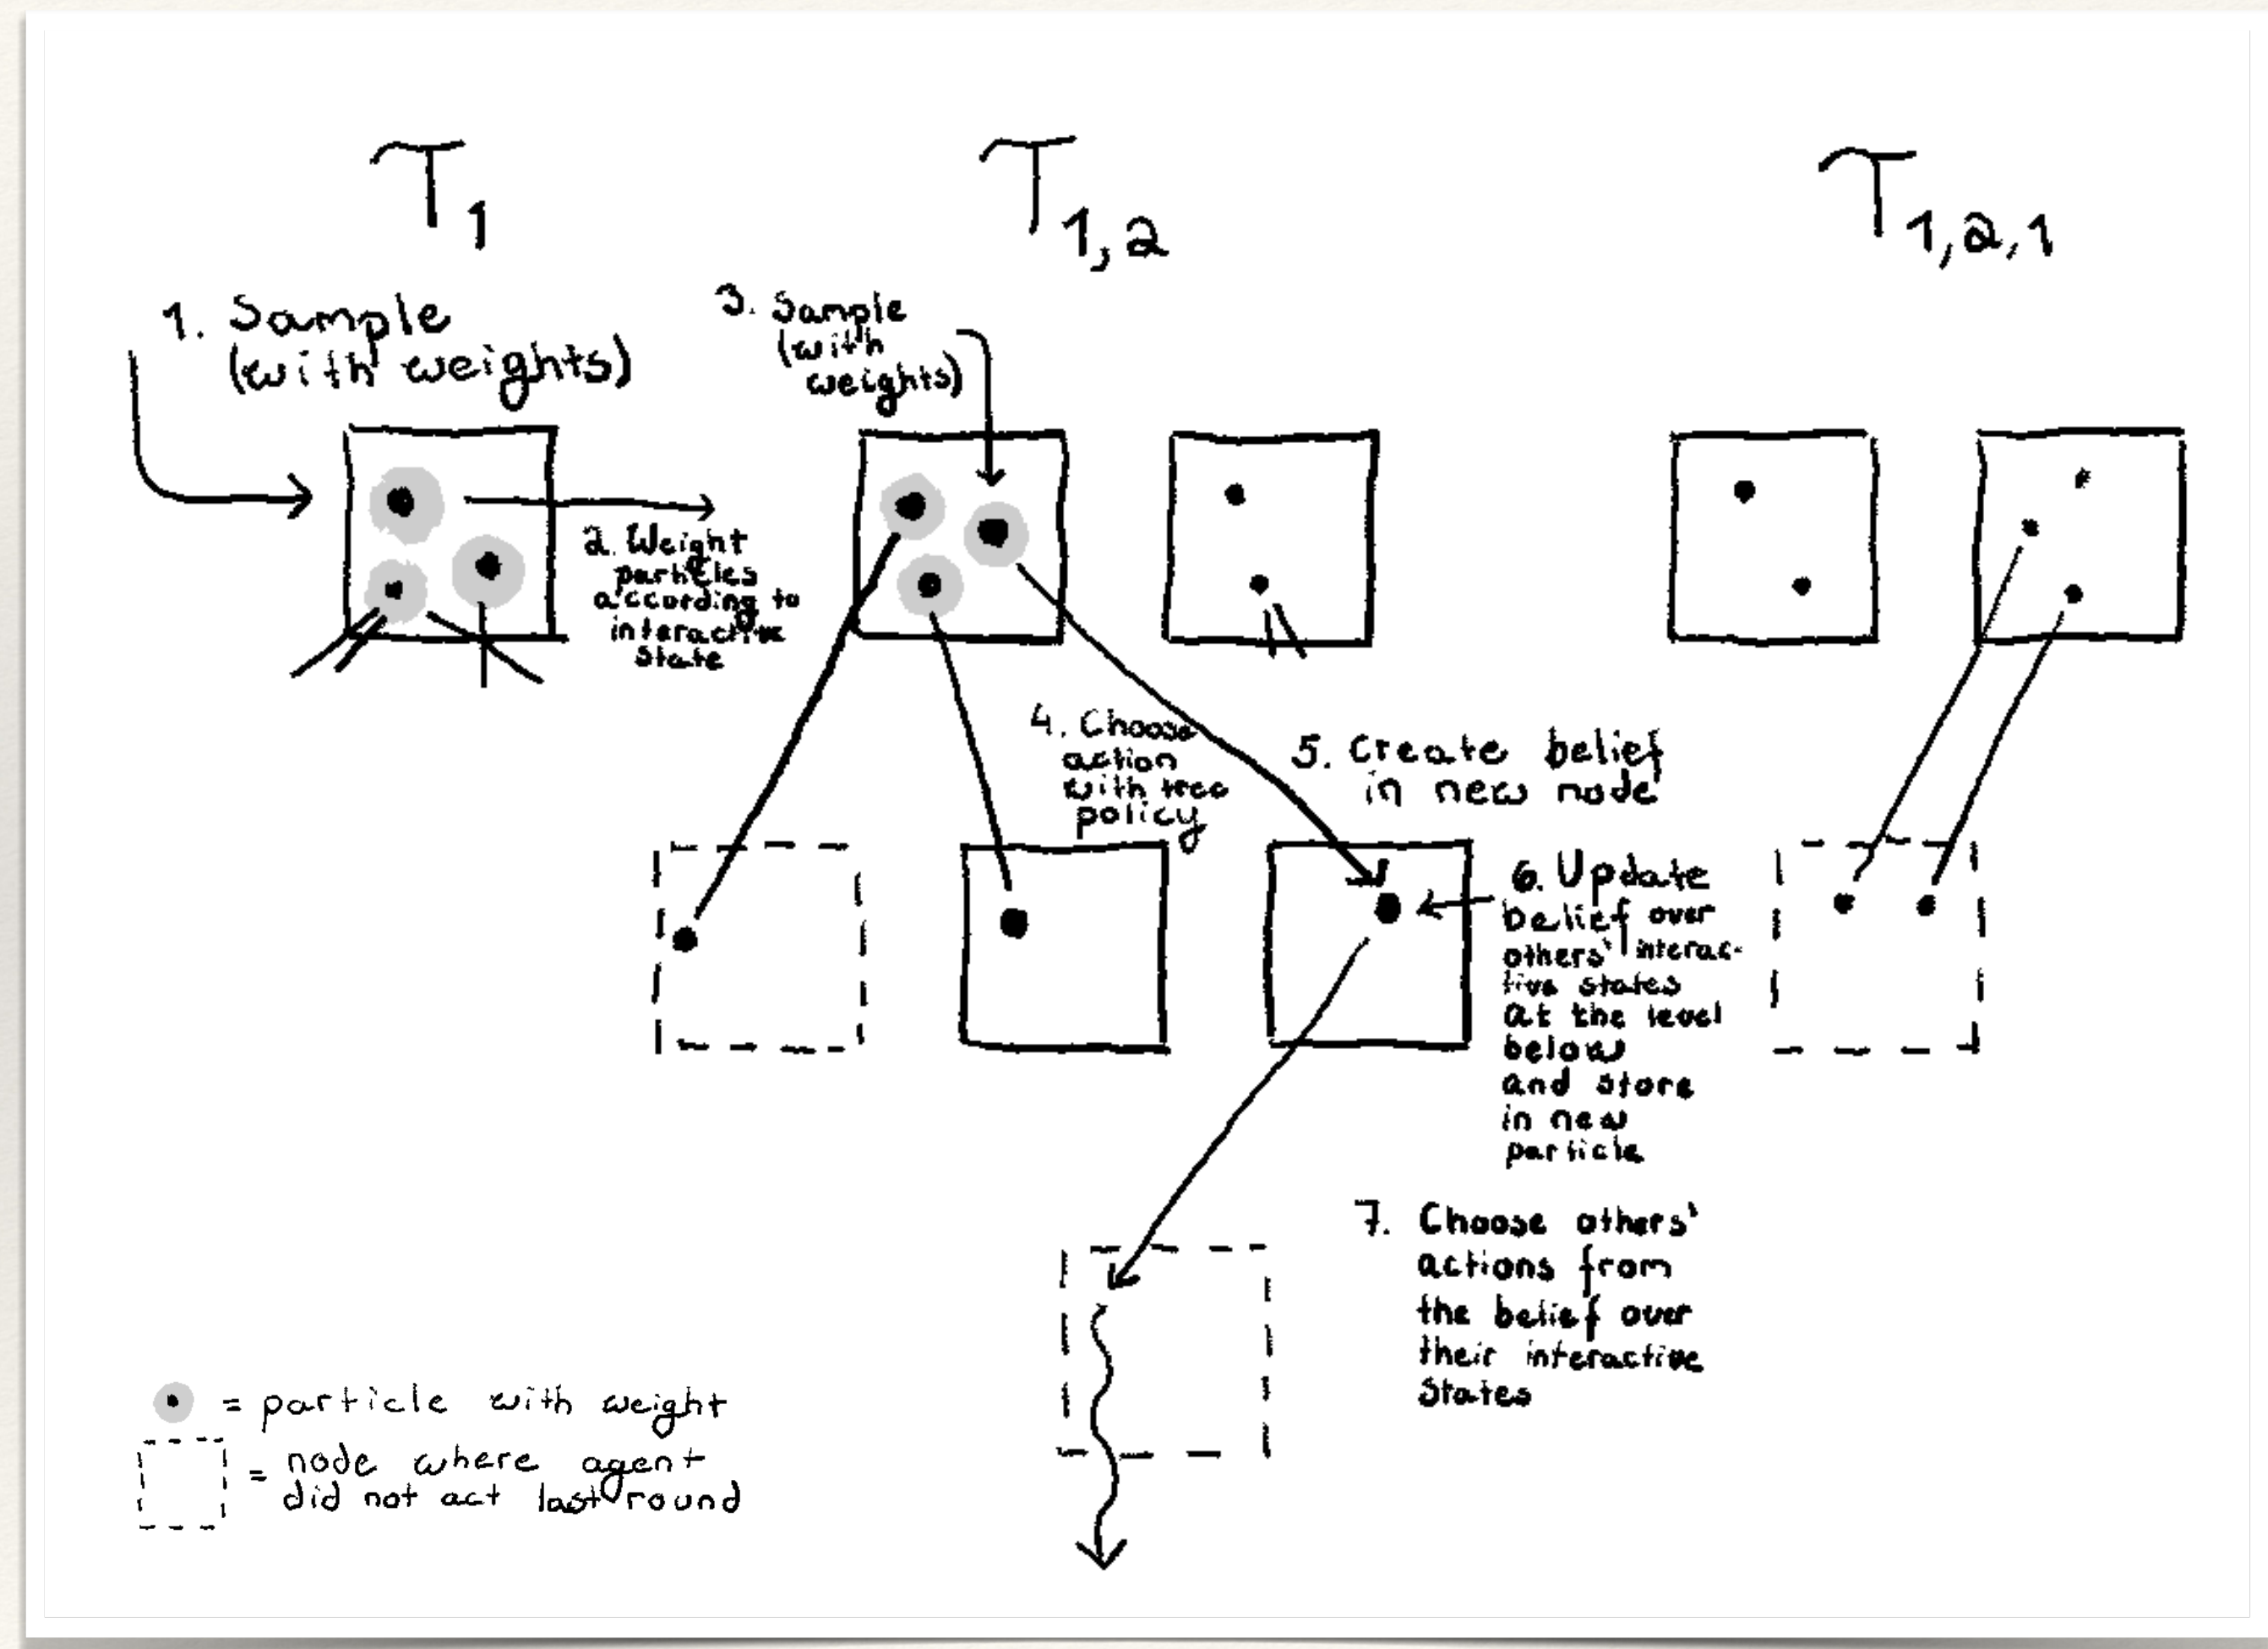 T1
T1,2
T1,2,1
1. Sample
(with weights)
3. Sample
(with
weights)
2. Weight
particles
according to
interactive
state
4. Choose
action
with tree
policy
5. Create belief
in new node
6. Update
belief over
others' interac-
tive states
at the level
below
and store
in new
particle
7. Choose others'
actions from
the belief over
their interactive
states
= particle with weight
= node where agent
did not act last round